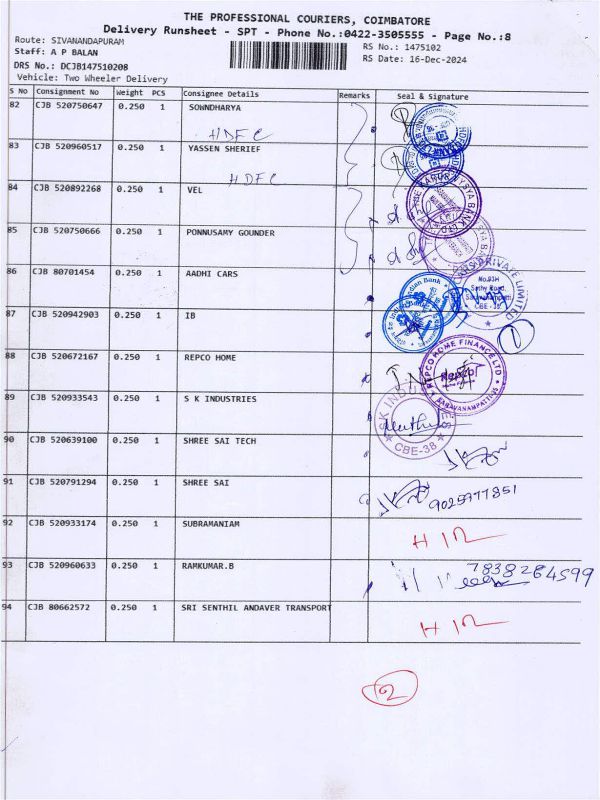 THE PROFESSIONAL COURIERS, COIMBATORE
Delivery Runsheet - SPT - Phone No.:0422-3505555 - Page No.:8
Route: SIVANANDAPURAM
RS No.: 1475102
Staff: A P BALAN
RS Date: 16-Dec-2024
DRS No.: DCJB147510208
Vehicle: Two Wheeler Delivery
S No Consignment No Weight PCS Consignee Details Remarks Seal & Signature
82 CJB 520750647 0.250 1 SOWNDHARYA
HDFC
83 CJB 520960517 0.250 1 YASSEN SHERIEF
HDFC
84 CJB 520892268 0.250 1 VEL
85 CJB 520750666 0.250 1 PONNUSAMY GOUNDER
86 CJB 80701454 0.250 1 AADHI CARS
PRIVATE LIMITED
Sathy Road,
CBE-35
Indian Bank
87 CJB 520942903 0.250 1 IB
1
88 CJB 520672167 0.250 1 REPCO HOME
REPCO HOME FINANCE LTD
SARAVANAMPATTI
89 CJB 520933543 0.250 1 S K INDUSTRIES
SK INDU
CBE-38
90 CJB 520639100 0.250 1 SHREE SAI TECH
91 CJB 520791294 0.250 1 SHREE SAI
9025977851
92 CJB 520933174 0.250 1 SUBRAMANIAM
93 CJB 520960633 0.250 1 RAMKUMAR.B
7838264599
94 CJB 80662572 0.250 1 SRI SENTHIL ANDAVER TRANSPORT
2